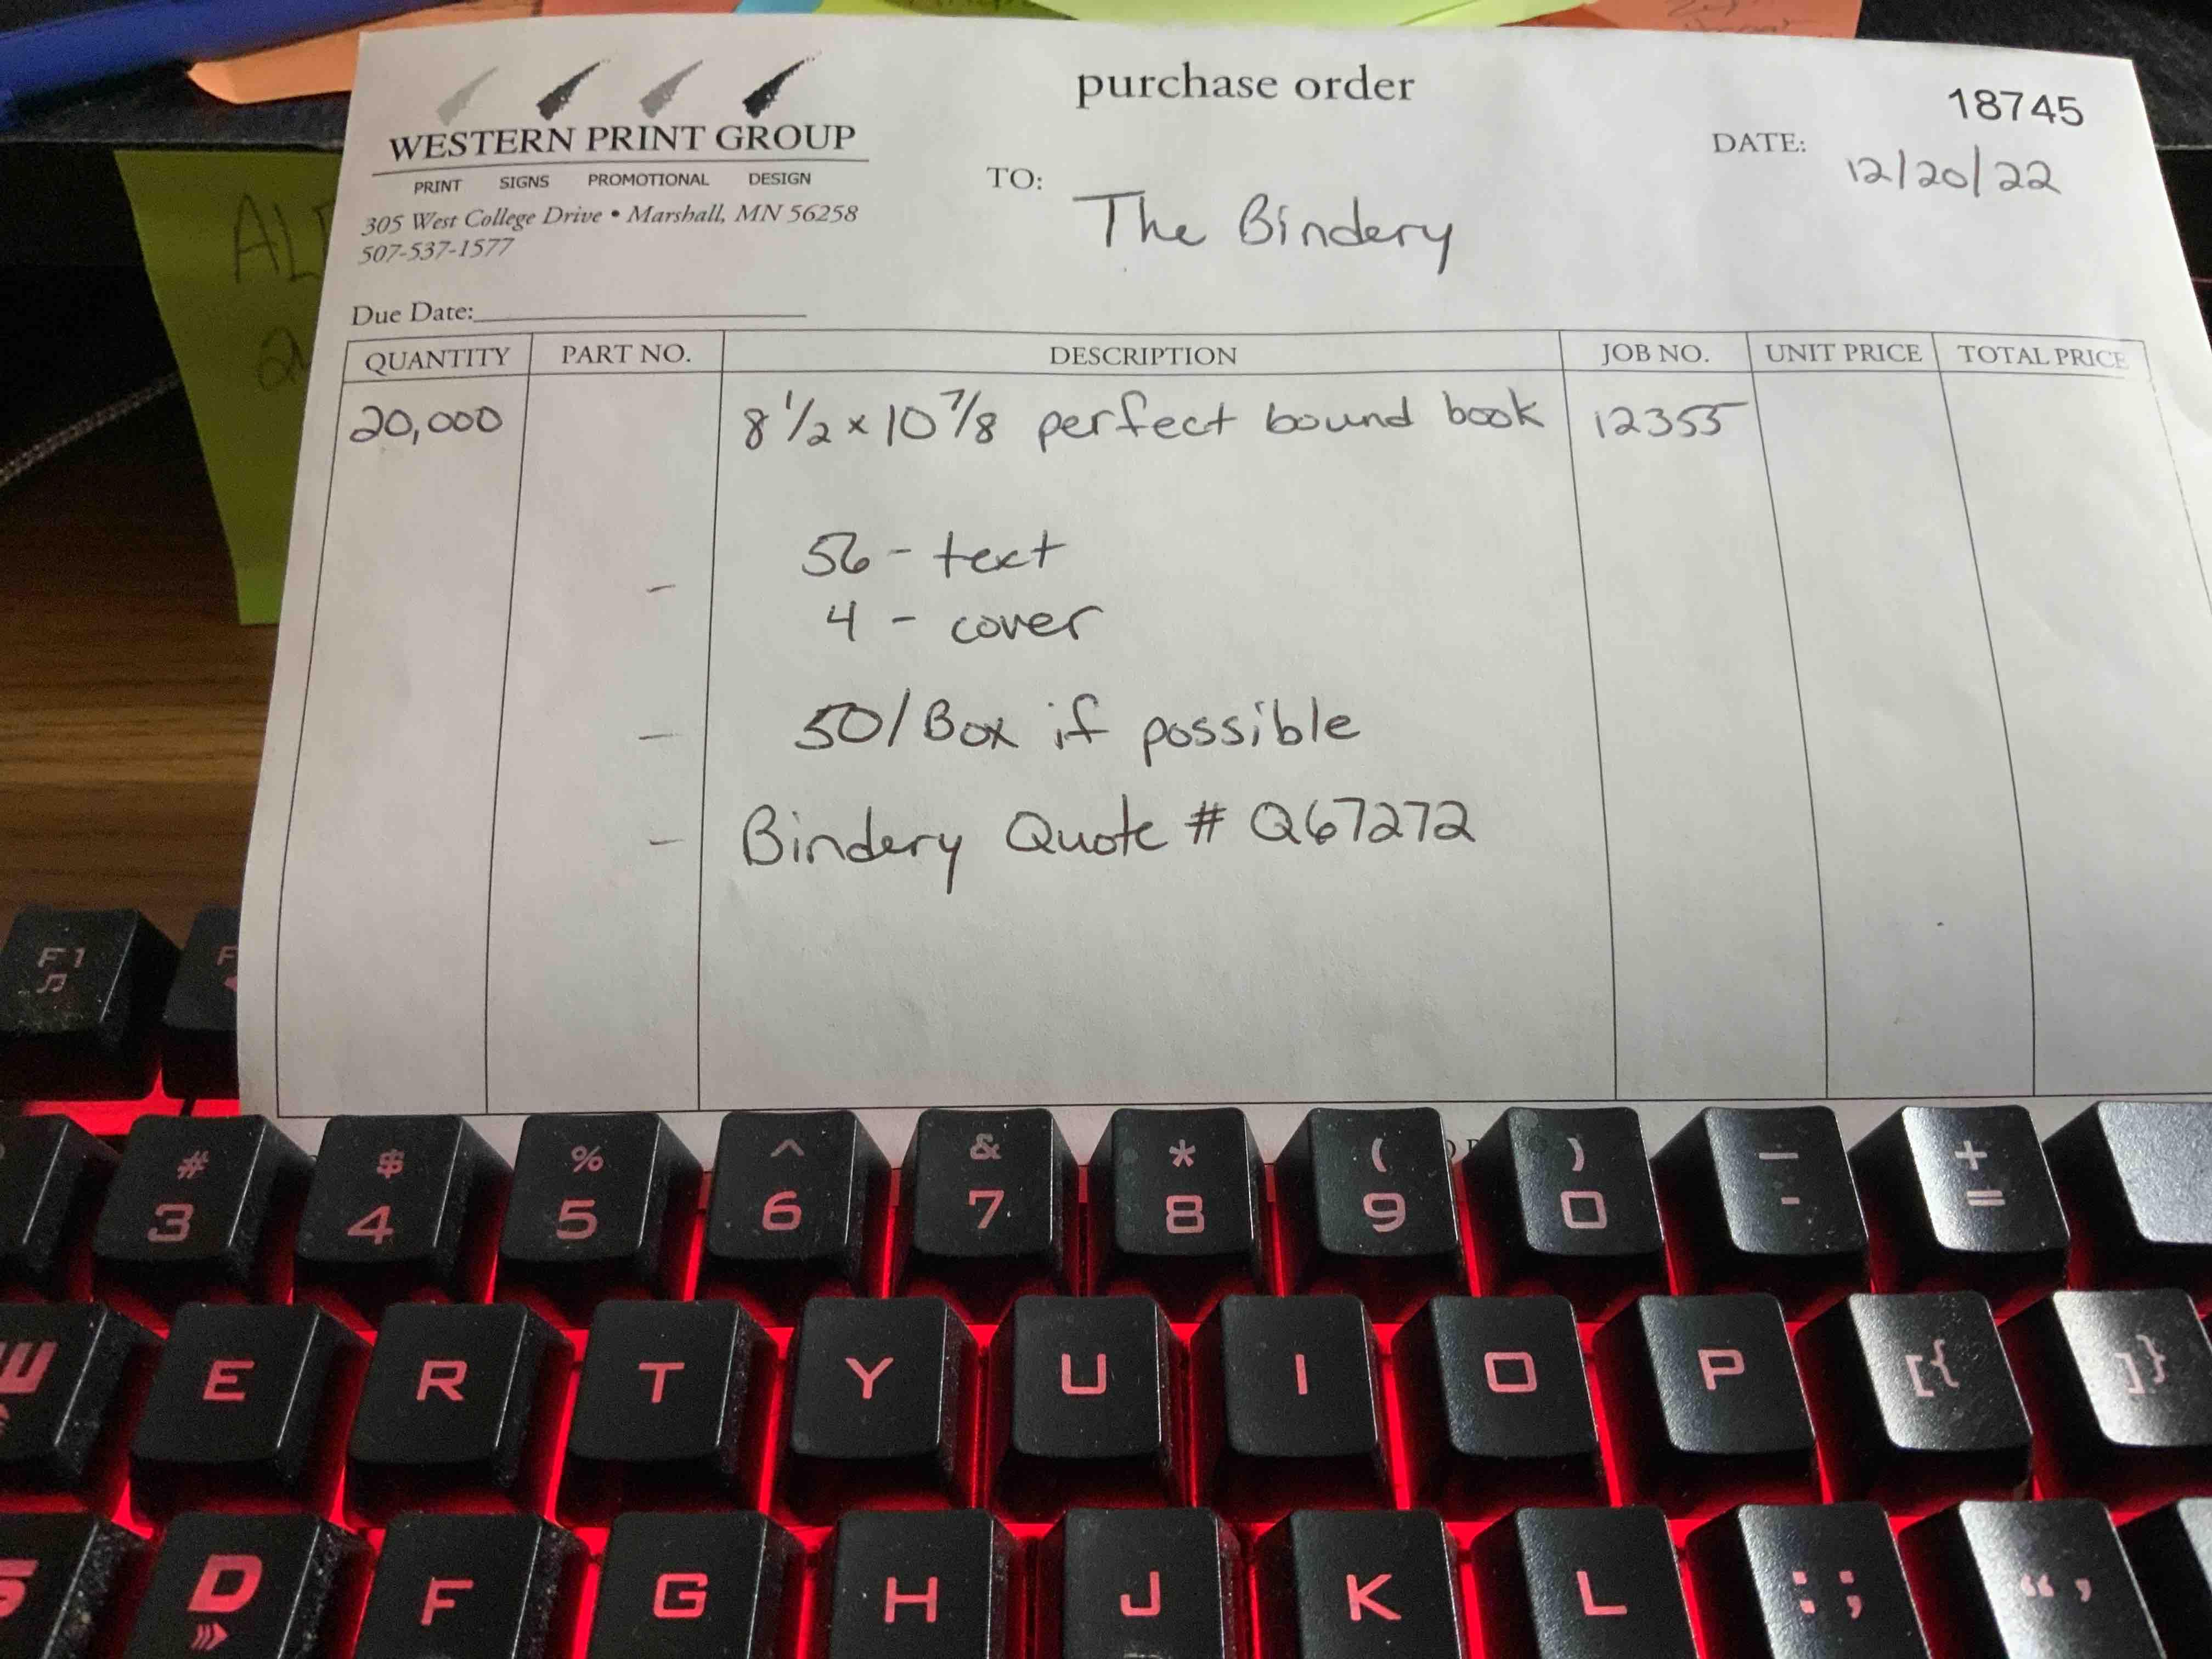 purchase order
18745
WESTERN PRINT GROUP
PRINT SIGNS PROMOTIONAL DESIGN
305 West College Drive • Marshall, MN 56258
507-537-1577
TO: The Bindery
DATE: 12/20/22
Due Date:
QUANTITY PART NO. DESCRIPTION JOB NO. UNIT PRICE TOTAL PRICE
20,000 8 1/2 x 10 7/8 perfect bound book 12355
56 - text
- 4 - cover
- 50/Box if possible
- Bindery Quote # Q67272
F1
# $ % ^ & * ( ) — +
3 4 5 6 7 8 9 0 - =
W E R T Y U I O P [{ ]}
S D F G H J K L : ; “ ,